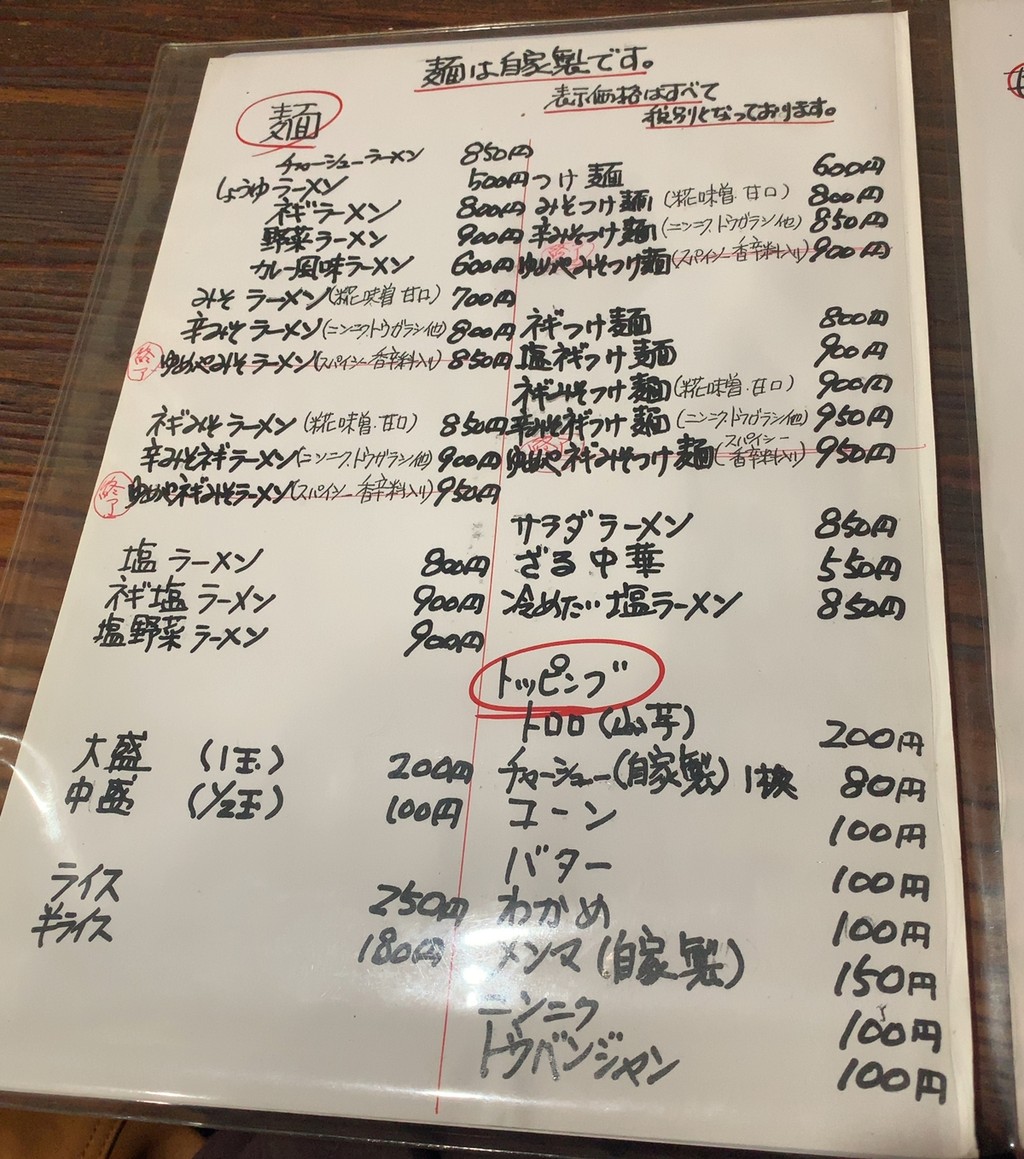 麺は自家製です。
表示価格はすべて
税別となっております。
麺
チャーシューラーメン 850円
しょうゆラーメン 500円
ネギラーメン 800円
野菜ラーメン 900円
カレー風味ラーメン 600円
みそラーメン(糀味噌 甘口) 700円
辛みそラーメン(ニンニク、トウガラシ他) 800円
終了 ゆめやみそラーメン(スパイシー香辛料入り) 850円
ネギみそラーメン(糀味噌・甘口) 850円
辛みそネギラーメン(ニンニク、トウガラシ他) 900円
終了 ゆめやネギみそラーメン(スパイシー香辛料入り) 950円
塩ラーメン 800円
ネギ塩ラーメン 900円
塩野菜ラーメン 900円
大盛 (1玉) 200円
中盛 (1/2玉) 100円
ライス 250円
半ライス 180円
つけ麺 600円
みそつけ麺(糀味噌・甘口) 800円
辛みそつけ麺(ニンニク、トウガラシ他) 850円
終了
ゆめやみそつけ麺(スパイシー香辛料入り) 900円
ネギつけ麺 800円
塩ネギつけ麺 900円
ネギみそつけ麺(糀味噌・甘口) 900円
辛みそネギつけ麺(ニンニク、トウガラシ他) 950円
終了
ゆめやネギみそつけ麺(スパイシー香辛料入り) 950円
サラダラーメン 850円
ざる中華 550円
冷めたい塩ラーメン 850円
トッピング
トロロ(山芋) 200円
チャーシュー(自家製)1枚 80円
コーン 100円
バター 100円
わかめ 100円
メンマ(自家製) 150円
ニンニク 100円
トウバンジャン 100円